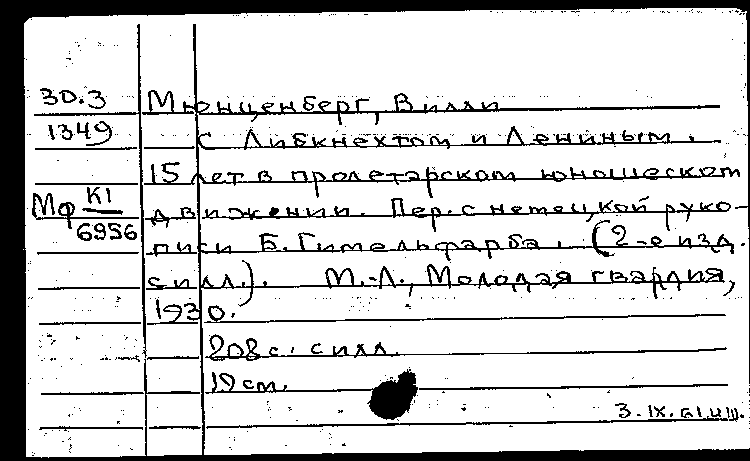 30.3 Мюнценберг, Вилли
1349 С Либкнехтом и Лениным.
15 лет в пролетарском юношеском
Мф К1 движении. Пер. с немецкой руко-
6956 писи Б. Гимельфарба. (2-е изд.
с илл.). М.-Л., Молодая гвардия,
1930.
208 с. с илл.
19 см.
3.IX.